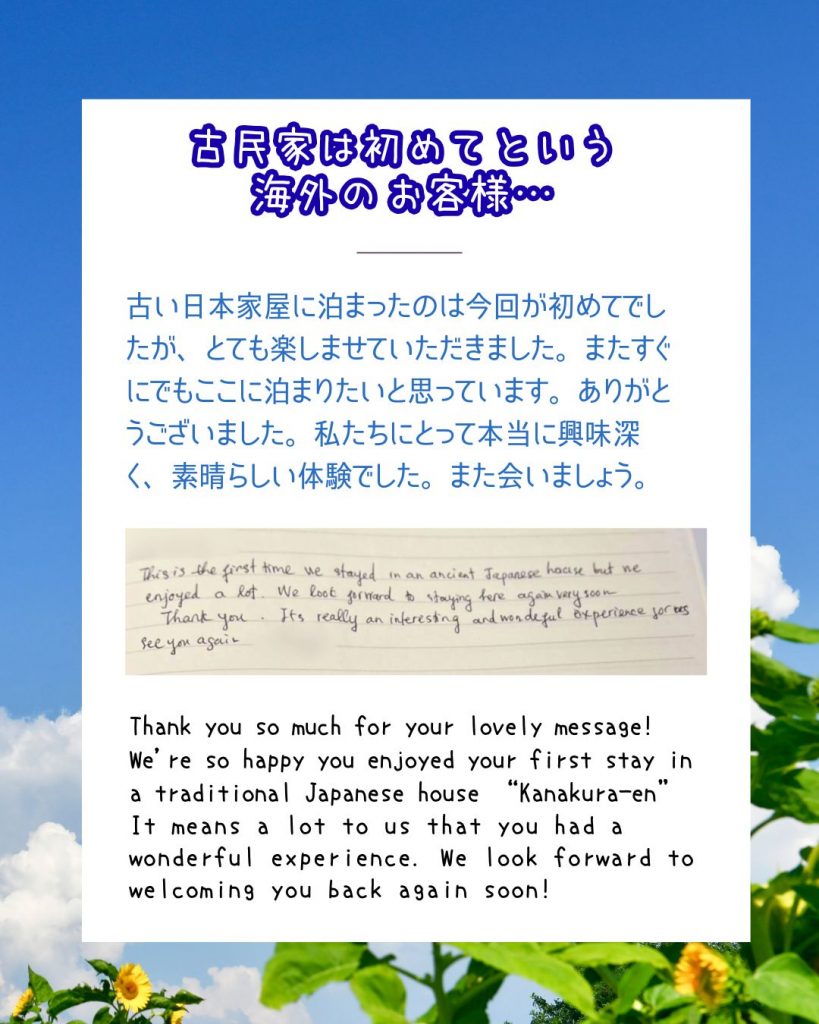 古民家は初めてという
海外のお客様…
古い日本家屋に泊まったのは今回が初めてでし
たが、とても楽しませていただきました。またすぐ
にでもここに泊まりたいと思っています。ありがと
うございました。私たちにとって本当に興味深
く、素晴らしい体験でした。また会いましょう。
This is the first time we stayed in an ancient Japanese house but we
enjoyed a lot. We look forward to staying here again very soon
Thank you. Its really an interesting and wondeful experience for us
see you again
Thank you so much for your lovely message!
We're so happy you enjoyed your first stay in
a traditional Japanese house “Kanakura-en”
It means a lot to us that you had a
wonderful experience. We look forward to
welcoming you back again soon!